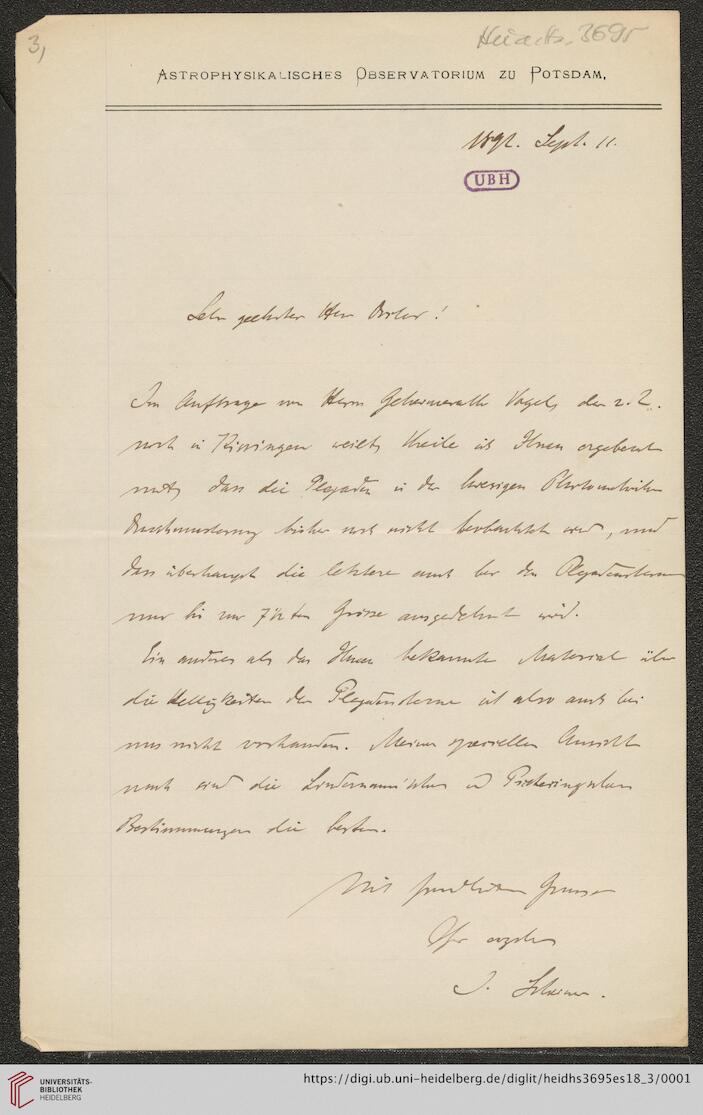 3,
Heid. Hs. 3695
ASTROPHYSIKALISCHES OBSERVATORIUM ZU POTSDAM,
1891. Sept. 11.
UBH
Sehr geehrter Herr Doctor!
Im Auftrage von Herrn Geheimerath Vogel, der z. Z.
noch in Kissingen weilt, theile ich Ihnen ergebenst
mit, dass die Plejaden in der hiesigen Photometrischen
Durchmusterung bisher noch nicht beobachtet sind, und
dass überhaupt die letztere auch bei den Plejadensternen
nur bis zur 7½ten Grösse ausgedehnt wird.
Ein anderes als das Ihnen bekannte Material über
die Helligkeiten der Plejadensterne ist also auch bei
uns nicht vorhanden. Meiner speciellen Ansicht
nach sind die Lindemann'schen u Pickeringschen
Bestimmungen die besten.
Mit freundlichem Grusse
Ihr ergebener
J. Scheiner.
UNIVERSITÄTS-
BIBLIOTHEK
HEIDELBERG
https://digi.ub.uni-heidelberg.de/diglit/heidhs3695es18_3/0001